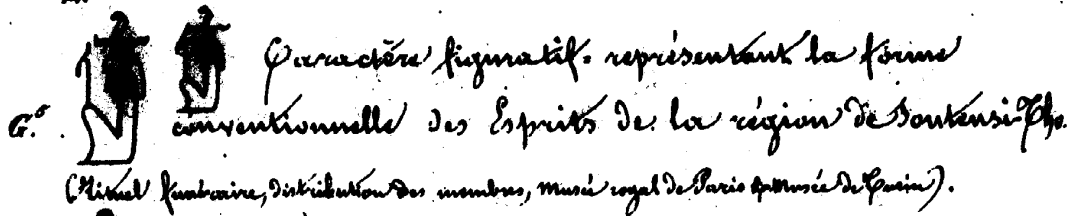 Caractère figuratif. représentant la forme
G.ᵉ conventionnelle des Esprits de la région de Sontensi-Tho.
(Rituel funéraire, distribution des membres, musée royal de Paris & Musée de Turin).